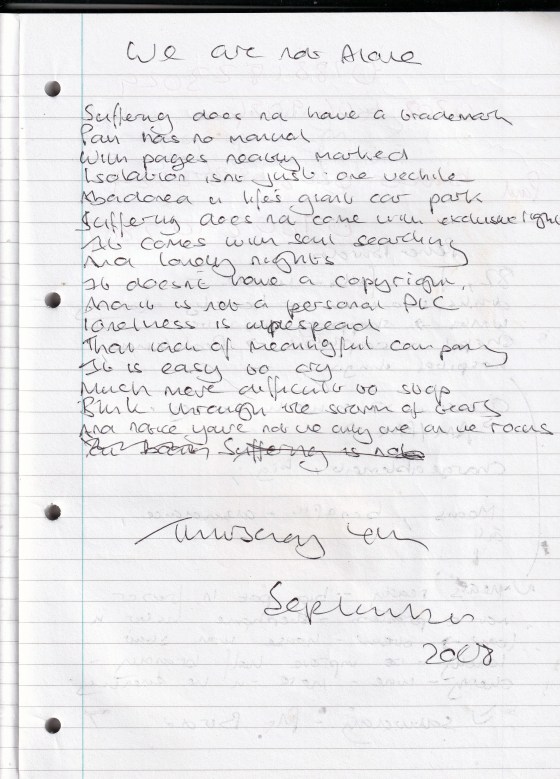 We are not Alone
Suffering does not have a trademark
Pain has no manual
With pages neatly marked
Isolation isnt just one vechile
Abadoned in life's giant car park
Suffering does not come with exclusive rights
It comes with soul searching
And lonely nights
It doesn't have a copyright,
And it is not a personal PLC
loneliness is widespread
That lack of meaningful company
It is easy to cry
Much more difficult to stop
Blink through the swarm of tears
And notice you're not the only one on the rocks
Suffering is not
September
2008